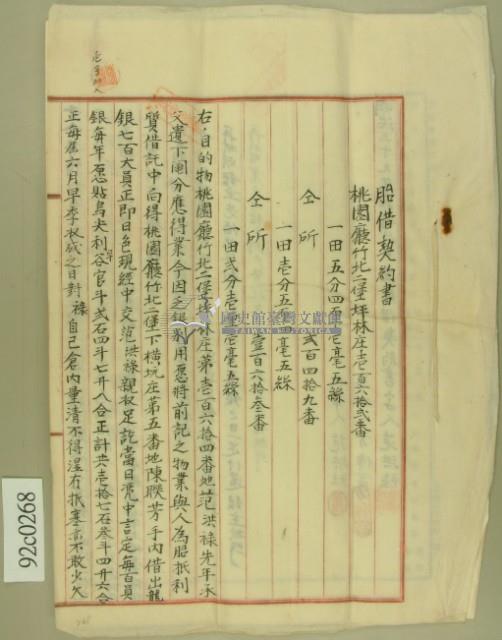 胎借契約書
桃園廳竹北二堡坪林庄壱百六拾弐番
一田五分四 壱毫五絲
仝所 弐百四拾九番
一田壱分五 毫五絲
仝所 壹百六拾叁番
一田弐分壱 壱毫五絲
右目的物桃園廳竹北二堡坪林庄第壱百六拾四番地范洪祿先年承
父遺下鬮分應得業今因乏銀別用愿將前記之物業與人為胎抵利
質借託中向得桃園廳竹北二堡下橫坑庄第五番地陳聯芳手內借出龍
銀七百大員正即日色現經中交范洪祿親收足訖當日凭中言定每百員
銀每年愿貼烏夫利谷官斗弐石四斗七升八合正計共壱拾七石叁斗四升六合
正每届六月早季收成之日對祿自己倉內量清不得濕冇抵塞亦不敢少欠
國史館臺灣文獻館
TAIWAN HISTORICA
92c0268